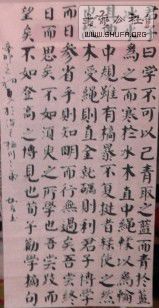 書法公社
WWW.SHUFA.ORG
子曰學不可以已青取之藍而青於藍
為之而寒於水木直中繩輮以為輪
曲中規雖有槁暴不復挺者輮使之然
木受繩則直金就礪則利君子博學
而日參省乎則知明而行無過矣吾嘗終
日而思矣不如須臾之所學也吾嘗跂而
望矣不如登高之博見也荀子勸學摘